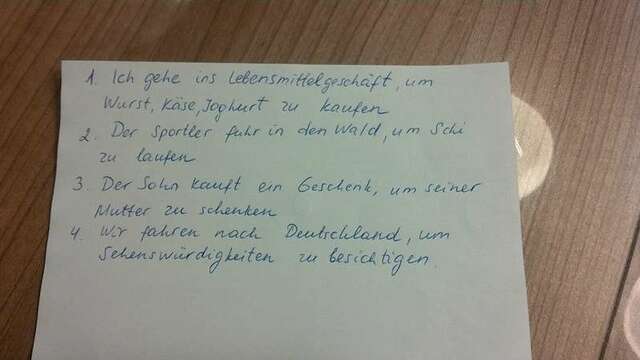 1. Ich gehe ins Lebensmittelgeschäft, um
Wurst, Käse, Joghurt zu kaufen
2. Der Sportler fuhr in den Wald, um Schi
zu laufen
3. Der Sohn kauft ein Geschenk, um seiner
Mutter zu schenken
4. Wir fahren nach Deutschland, um
Sehenswürdigkeiten zu besichtigen.